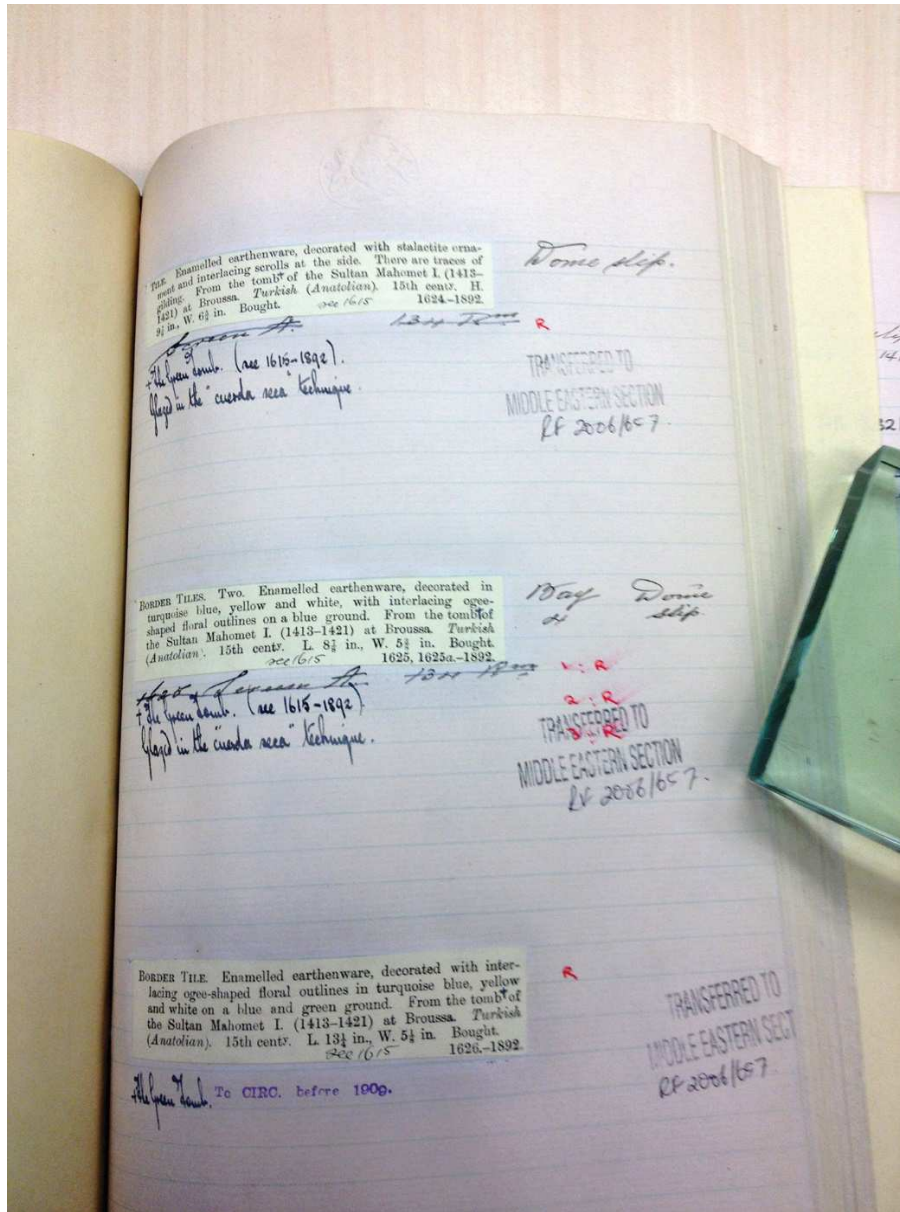 TILE. Enamelled earthenware, decorated with stalactite orna-
ment and interlacing scrolls at the side. There are traces of
gilding. From the tomb+ of the Sultan Mahomet I. (1413–
1421) at Broussa. Turkish (Anatolian). 15th centy. H.
in., W. in. Bought. see 1615 1624.–1892.
Dome slip.
134 Rm R
+ The Green Tomb. (see 1615–1892).
Glazed in the "cuerda seca" technique.
TRANSFERRED TO
MIDDLE EASTERN SECTION
RF 2006/657.
BORDER TILES. Two. Enamelled earthenware, decorated in
turquoise blue, yellow and white, with interlacing ogee-
shaped floral outlines on a blue ground. From the tomb+ of
the Sultan Mahomet I. (1413–1421) at Broussa. Turkish
(Anatolian). 15th centy. L. in., W. in. Bought.
see 1615 1625, 1625a.–1892.
Bay Dome
slip
134 Rm : R
2 : R
: R
+ The Green Tomb. (see 1615–1892)
Glazed in the "cuerda seca" technique.
TRANSFERRED TO
MIDDLE EASTERN SECTION
RF 2006/657.
BORDER TILE. Enamelled earthenware, decorated with inter-
lacing ogee-shaped floral outlines in turquoise blue, yellow
and white on a blue and green ground. From the tomb+ of
the Sultan Mahomet I. (1413–1421) at Broussa. Turkish
(Anatolian). 15th centy. L. 13¼ in., W. in. Bought.
see 1615 1626.–1892.
R
+ The Green Tomb. To CIRC. before 1909.
TRANSFERRED TO
MIDDLE EASTERN SECT
RF 2006/657